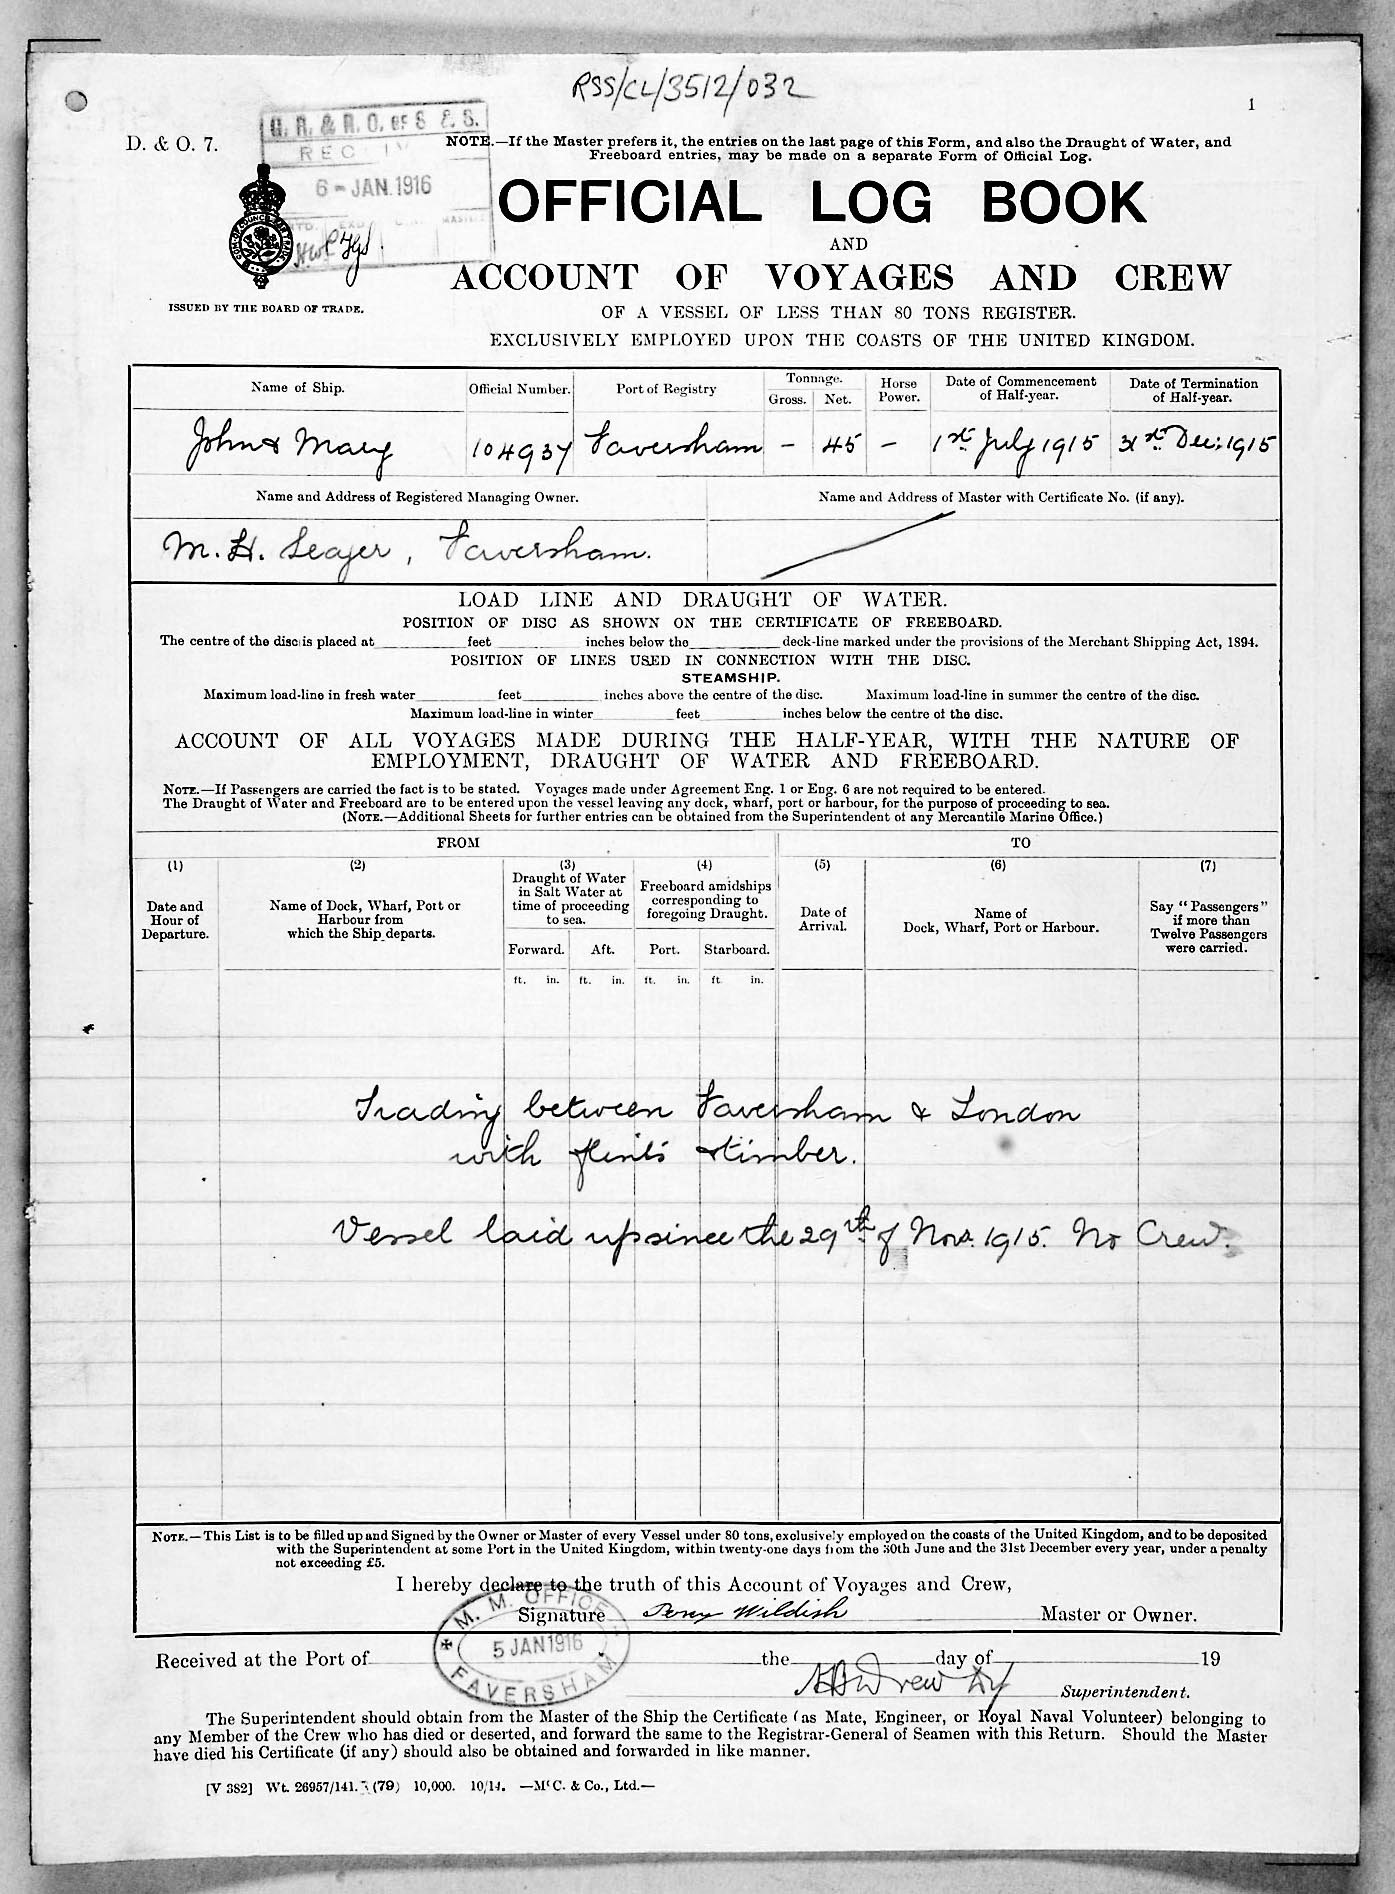 RSS/CL/3512/032
1
D. & O. 7.
G. R. & R. O. OF S & S.
RECEIV
6 - JAN. 1916
NOTE.—If the Master prefers it, the entries on the last page of this Form, and also the Draught of Water, and
Freeboard entries, may be made on a separate Form of Official Log.
OFFICIAL LOG BOOK
AND
ACCOUNT OF VOYAGES AND CREW
ISSUED BY THE BOARD OF TRADE.
OF A VESSEL OF LESS THAN 80 TONS REGISTER.
EXCLUSIVELY EMPLOYED UPON THE COASTS OF THE UNITED KINGDOM.
Name of Ship. Official Number. Port of Registry Tonnage. Gross. Net. Horse Power. Date of Commencement of Half-year. Date of Termination of Half-year.
John & Mary 104937 Faversham – 45 – 1st July 1915 31st Dec: 1915
Name and Address of Registered Managing Owner. Name and Address of Master with Certificate No. (if any).
M. H. Seager, Faversham.
LOAD LINE AND DRAUGHT OF WATER.
POSITION OF DISC AS SHOWN ON THE CERTIFICATE OF FREEBOARD.
The centre of the disc is placed at feet inches below the deck-line marked under the provisions of the Merchant Shipping Act, 1894.
POSITION OF LINES USED IN CONNECTION WITH THE DISC.
STEAMSHIP.
Maximum load-line in fresh water feet inches above the centre of the disc. Maximum load-line in summer the centre of the disc.
Maximum load-line in winter feet inches below the centre of the disc.
ACCOUNT OF ALL VOYAGES MADE DURING THE HALF-YEAR, WITH THE NATURE OF
EMPLOYMENT, DRAUGHT OF WATER AND FREEBOARD.
NOTE.—If Passengers are carried the fact is to be stated. Voyages made under Agreement Eng. 1 or Eng. 6 are not required to be entered.
The Draught of Water and Freeboard are to be entered upon the vessel leaving any dock, wharf, port or harbour, for the purpose of proceeding to sea.
(NOTE.—Additional Sheets for further entries can be obtained from the Superintendent of any Mercantile Marine Office.)
FROM TO
(1) (2) (3) (4) (5) (6) (7)
Date and Hour of Departure.
Name of Dock, Wharf, Port or Harbour from which the Ship departs.
Draught of Water in Salt Water at time of proceeding to sea.
Freeboard amidships corresponding to foregoing Draught.
Date of Arrival.
Name of Dock, Wharf, Port or Harbour.
Say "Passengers" if more than Twelve Passengers were carried.
Forward. Aft. Port. Starboard.
ft. in. ft. in. ft. in. ft. in.
Trading between Faversham & London
with flints & timber.
Vessel laid up since the 29th of Nov. 1915. No Crew.
NOTE.—This List is to be filled up and Signed by the Owner or Master of every Vessel under 80 tons, exclusively employed on the coasts of the United Kingdom, and to be deposited
with the Superintendent at some Port in the United Kingdom, within twenty-one days from the 30th June and the 31st December every year, under a penalty
not exceeding £5.
I hereby declare to the truth of this Account of Voyages and Crew,
Signature Percy Wildish Master or Owner.
M. M. OFFICE
5 JAN 1916
FAVERSHAM
Received at the Port of the day of 19
Superintendent.
The Superintendent should obtain from the Master of the Ship the Certificate (as Mate, Engineer, or Royal Naval Volunteer) belonging to
any Member of the Crew who has died or deserted, and forward the same to the Registrar-General of Seamen with this Return. Should the Master
have died his Certificate (if any) should also be obtained and forwarded in like manner.
[V 382] Wt. 26957/141. (79) 10,000. 10/14. —McC. & Co., Ltd.—